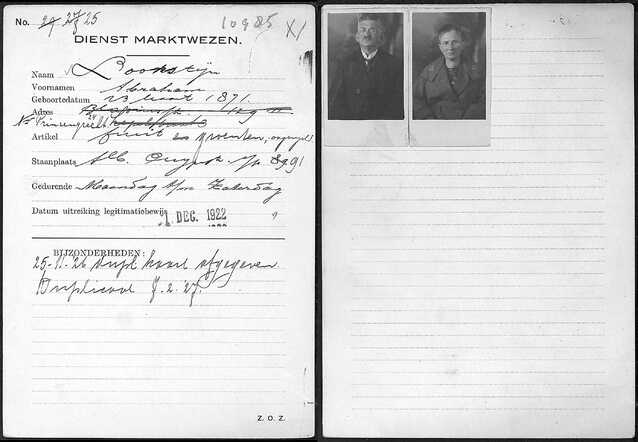 No. 27 25
10985 XI
DIENST MARKTWEZEN.
Naam Bookstijn
Voornamen Abraham
Geboortedatum 23 Maart 1871.
Adres
Nwe Prinsengracht 24
Artikel fruit en groenten,
Staanplaats Alb. Cuypstr. 91
Gedurende Maandag t/m Zaterdag
Datum uitreiking legitimatiebewijs 1 DEC. 1922
BIJZONDERHEDEN:
25-11-26 Dupl kaart afgegeven
Duplicaat 7.2.'27.
Z. O. Z.